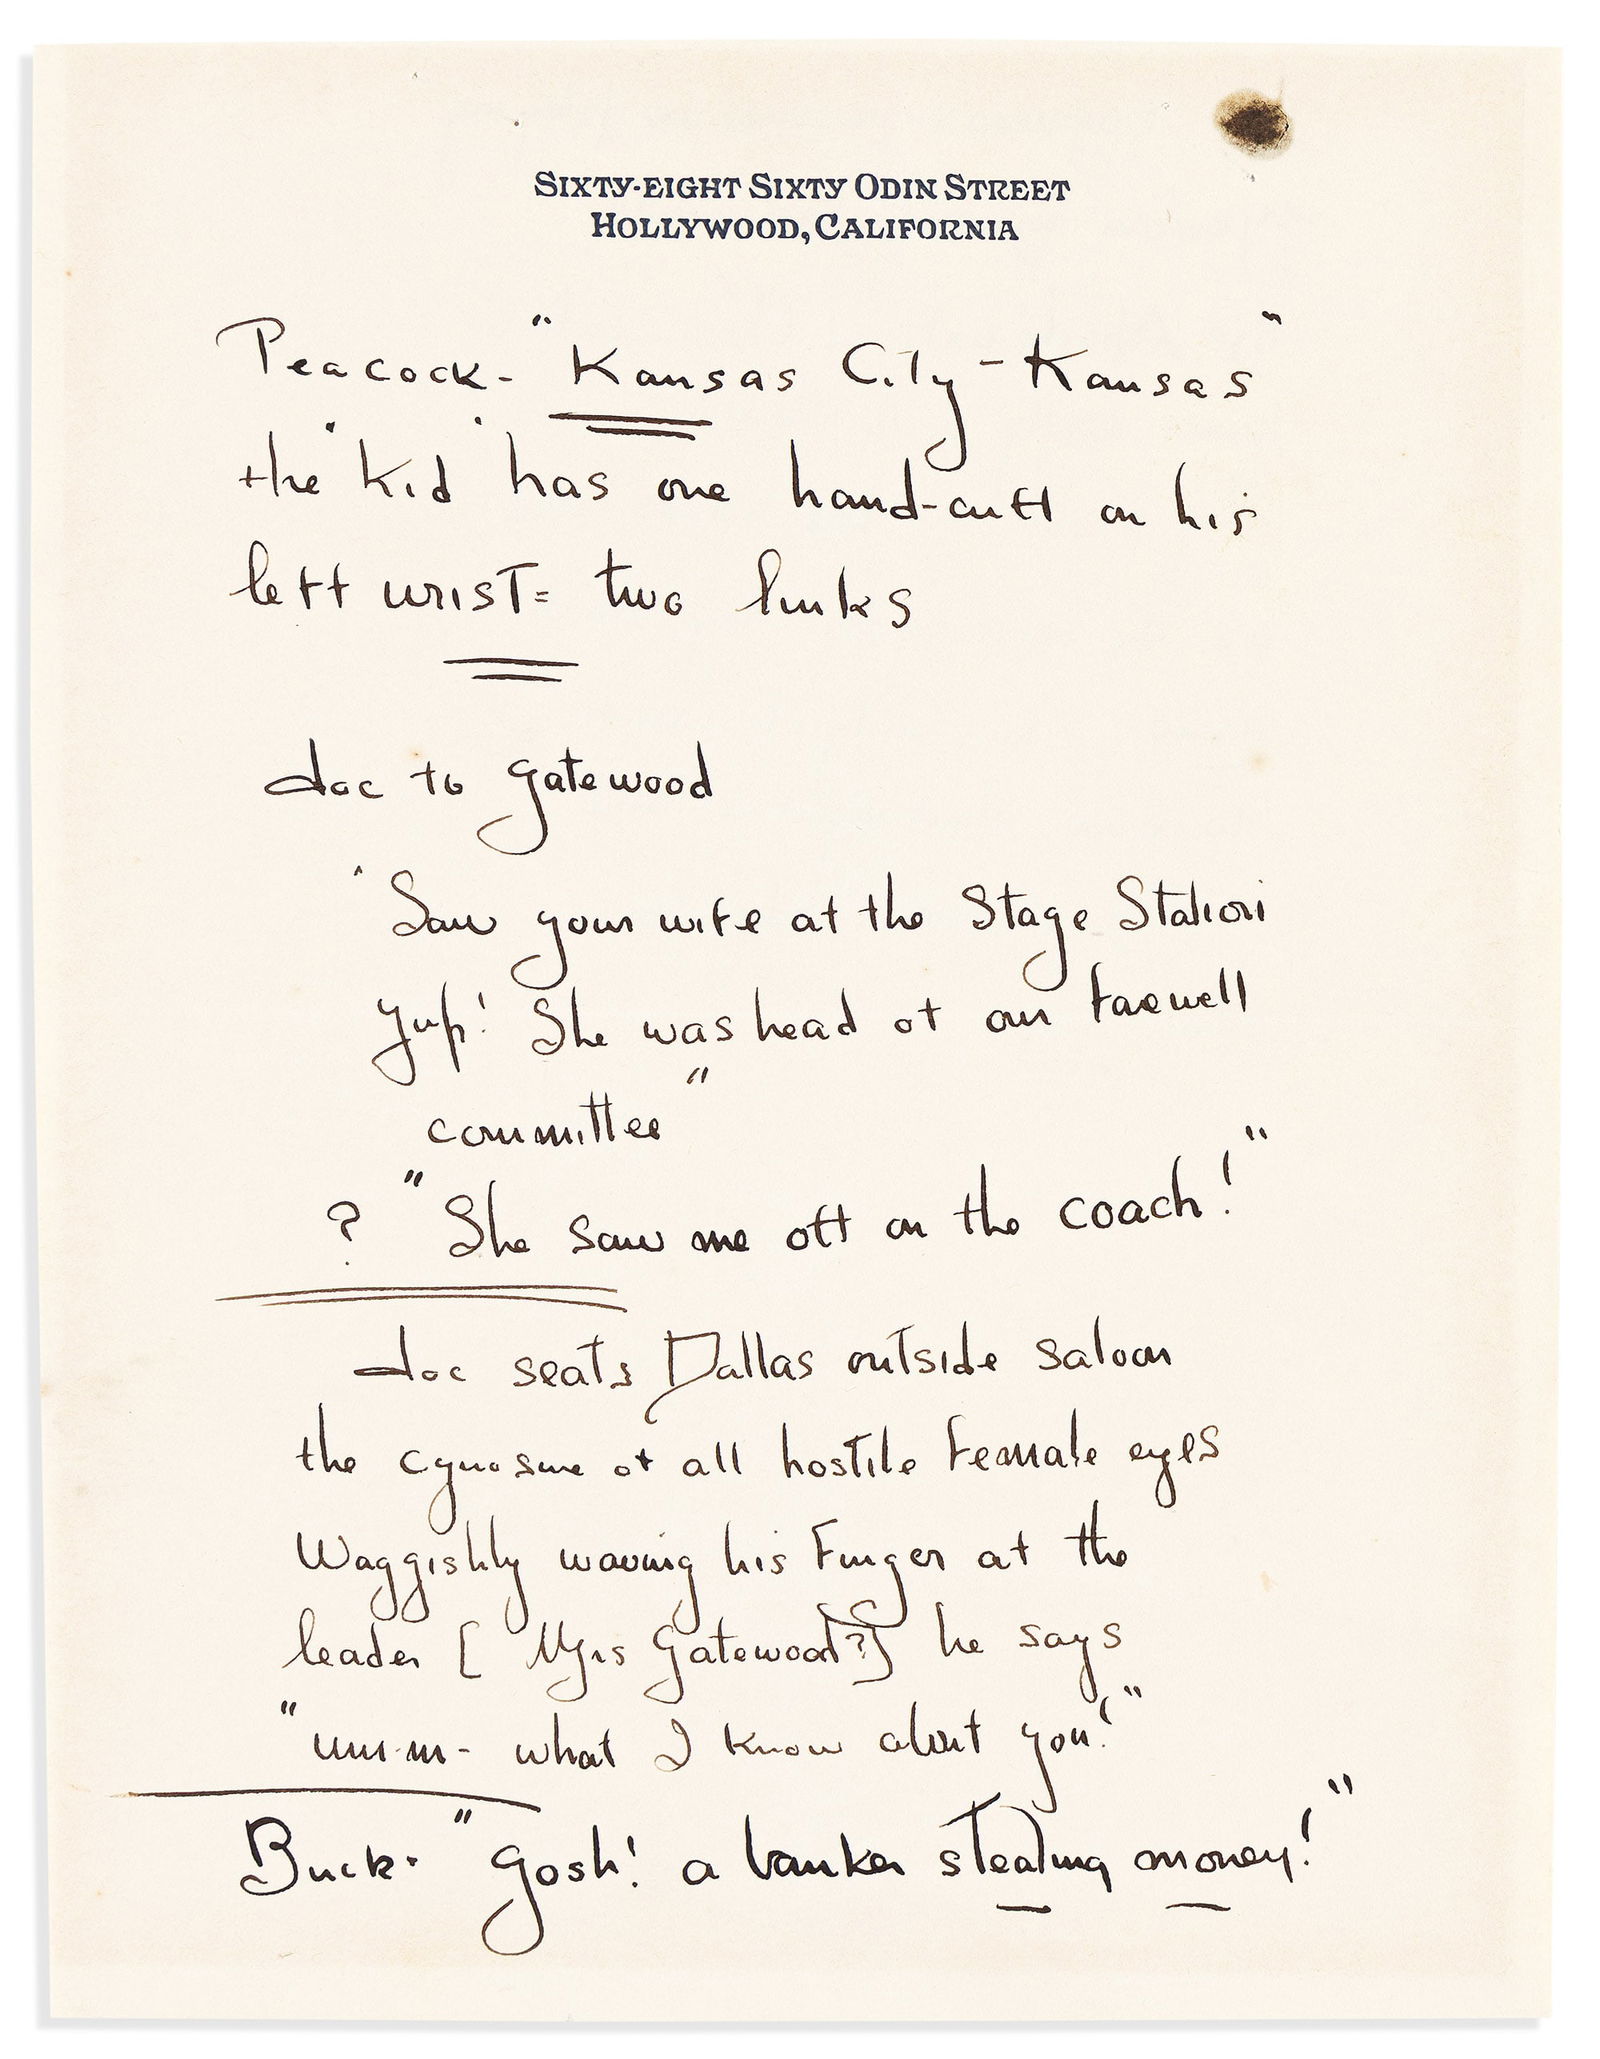 SIXTY-EIGHT SIXTY ODIN STREET
HOLLYWOOD, CALIFORNIA
Peacock- "Kansas City - Kansas"
the "Kid" has one hand-cuff on his
left wrist = two links
doc to Gatewood
"Saw your wife at the Stage Station
Yup! She was head of our farewell
committee"
? "She saw me off on the coach!"
doc seats Dallas outside saloon
the cynosure of all hostile female eyes
Waggishly waving his finger at the
leader [Mrs Gatewood?] he says
"um-m- what I know about you!"
Buck- "Gosh! a banker stealing money!"